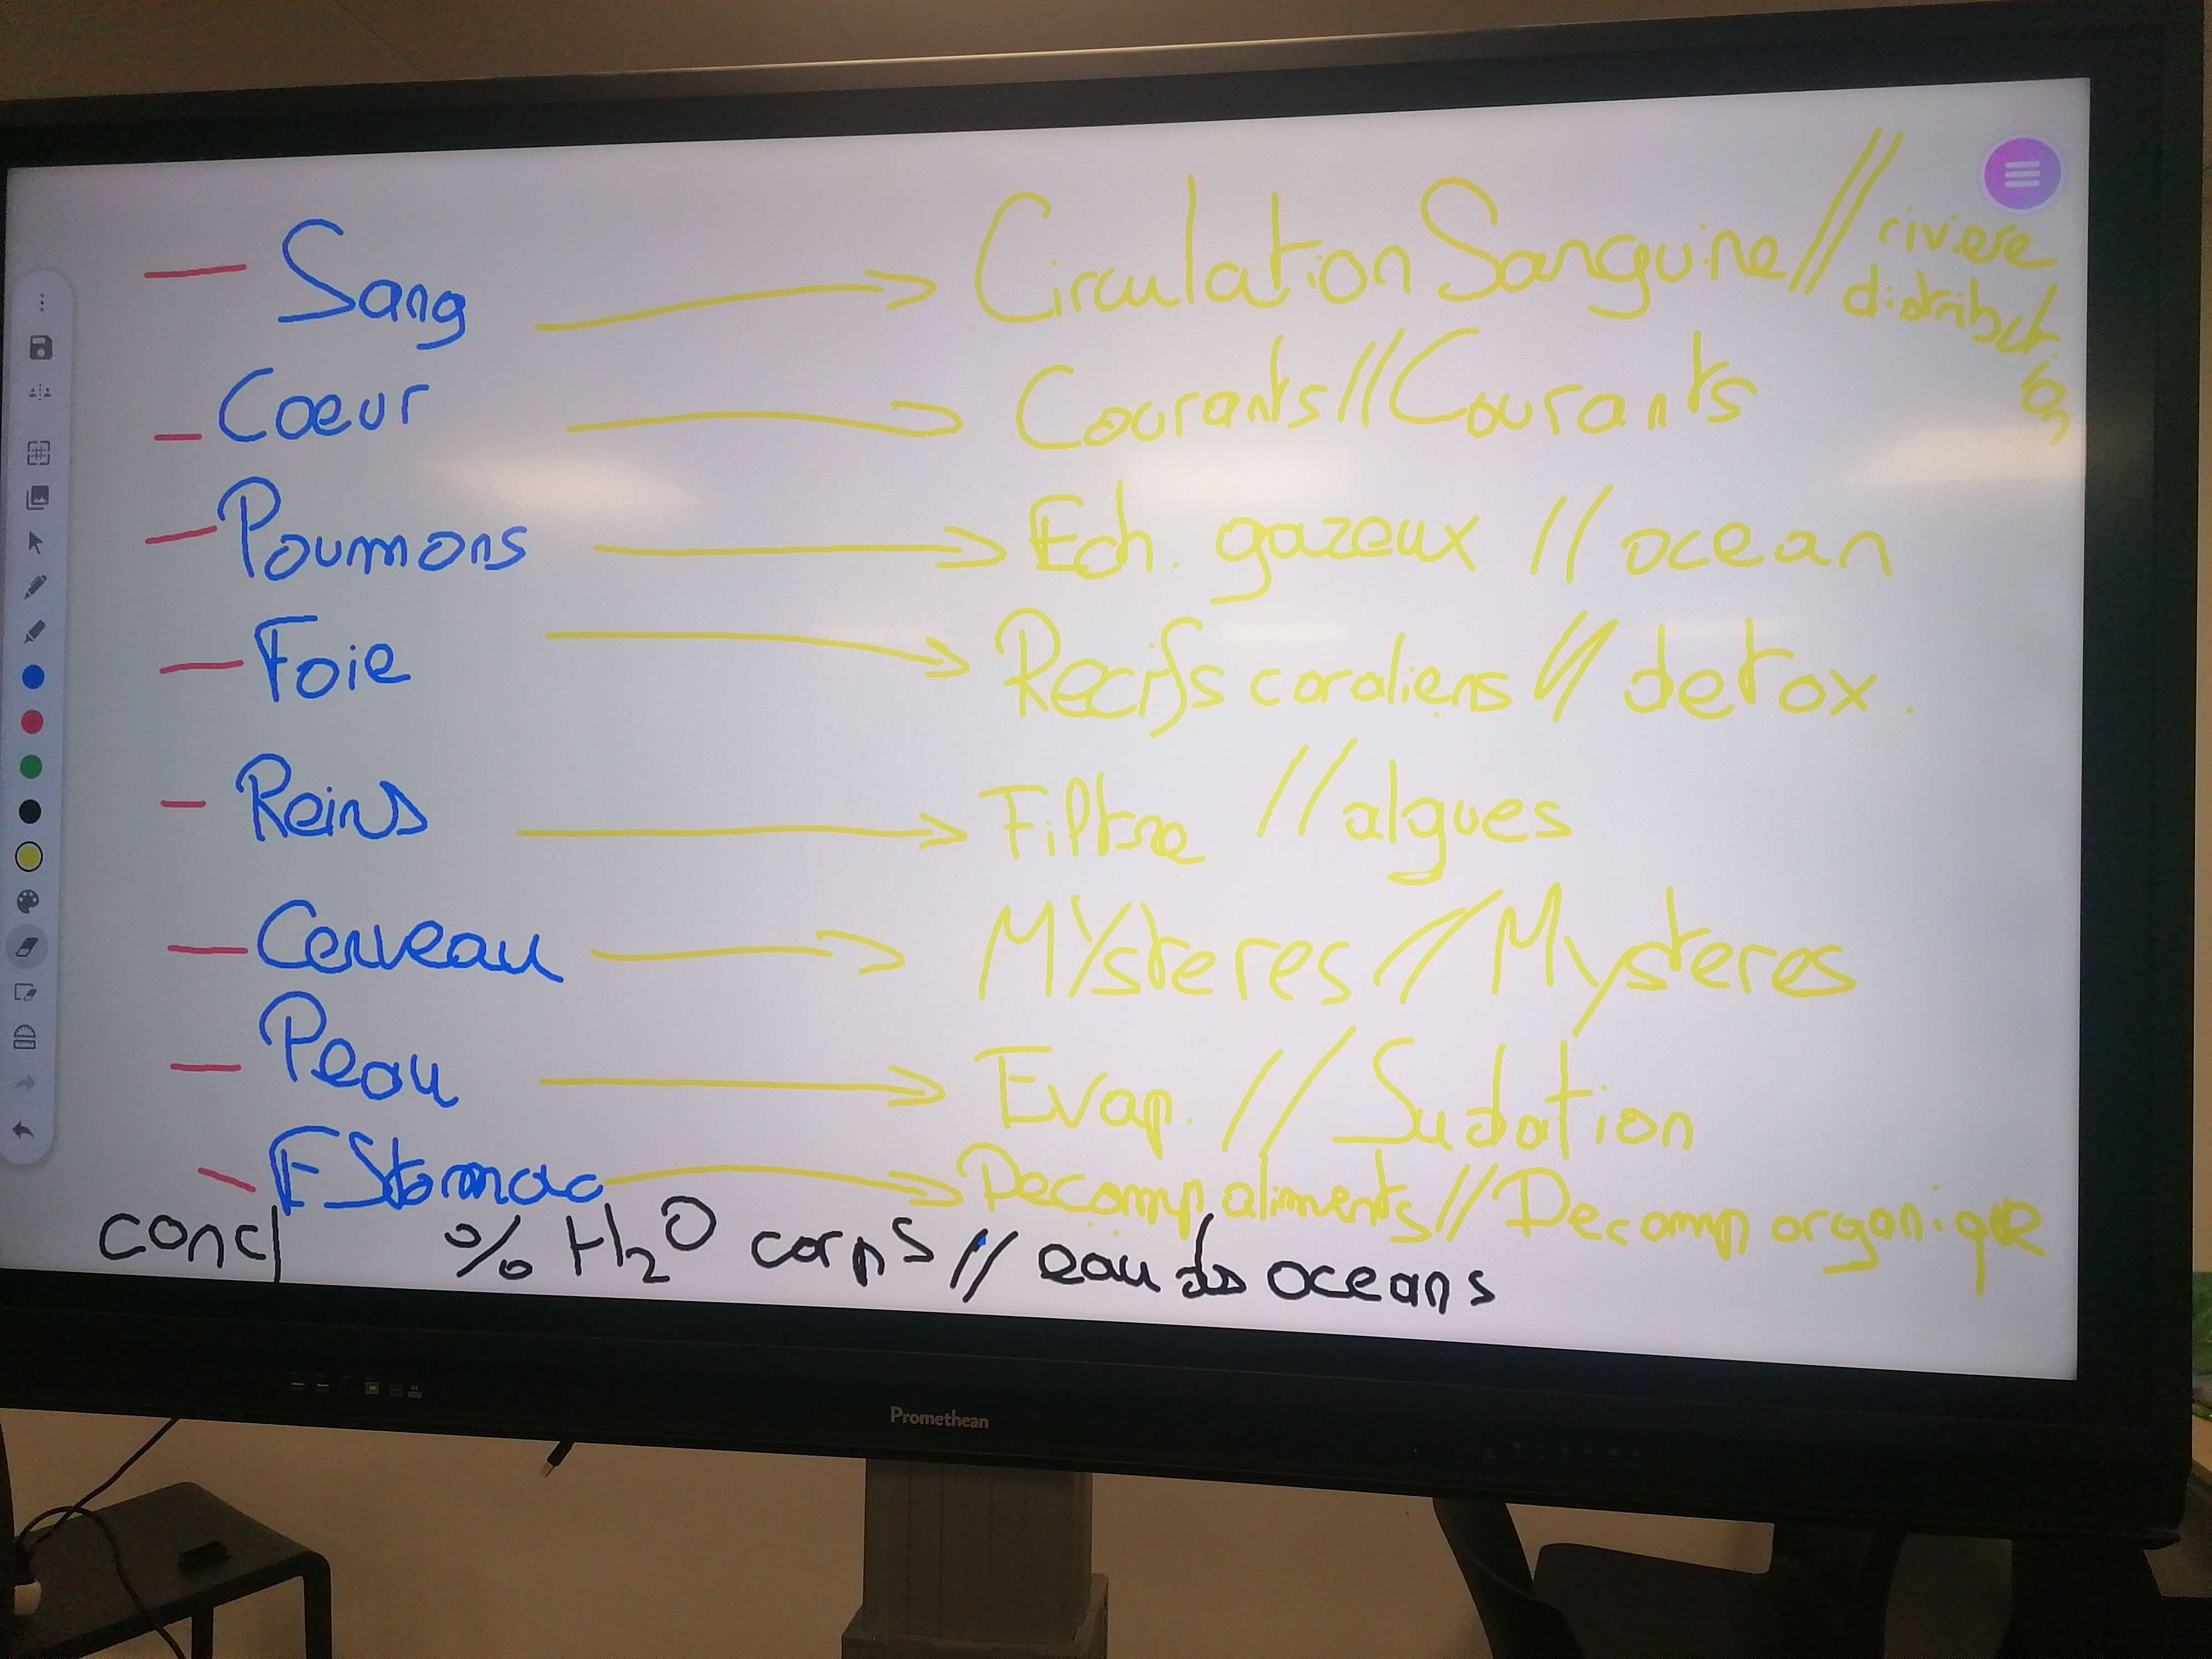 — Sang → Circulation Sanguine // riviere distribution
— Coeur → Courants // Courants
— Poumons → Ech. gazeux // ocean
— Foie → Recifs coraliens // detox.
— Reins → Filtre // algues
— Cerveau → MYsteres // Mysteres
— Peau → Evap. // Sudation
— EStomac → Decomp aliments // Decomp organique
concl % H₂O corps // eau des oceans
Promethean